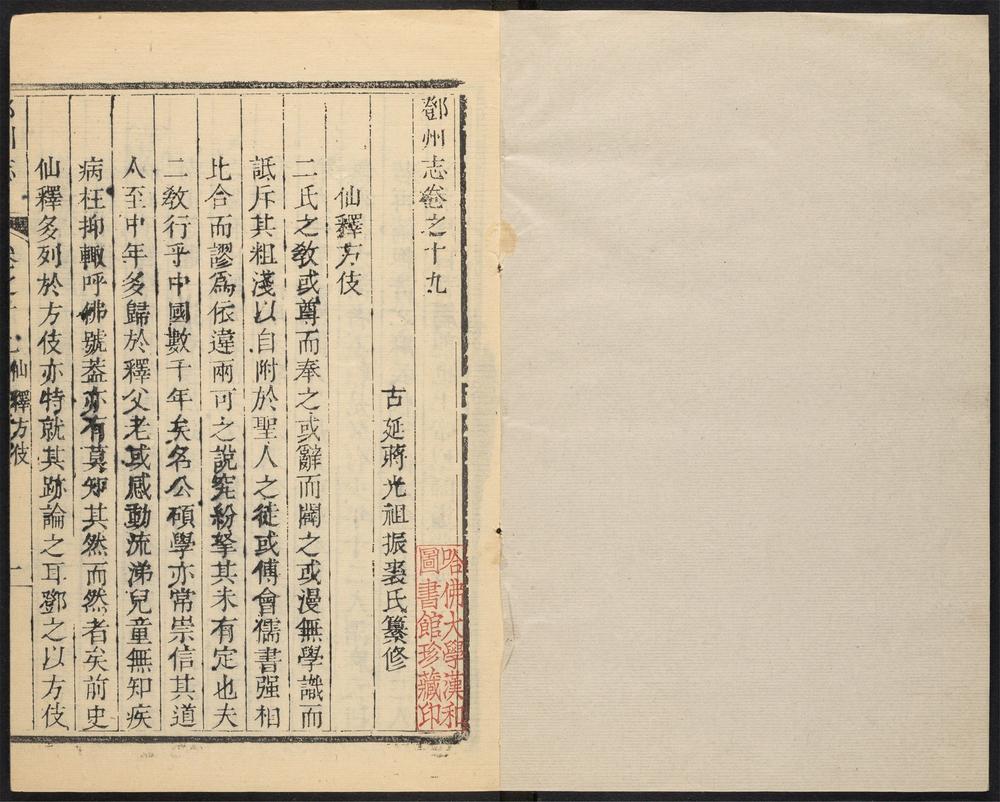 鄧州志卷之十九
古延蔣光祖振裘氏纂修
仙釋方伎
二氏之教或尊而奉之或辭而闢之或漫無學識而
詆斥其粗淺以自附於聖人之徒或傅會儒書强相
比合而謬爲依違兩可之說究紛拏其未有定也夫
二教行乎中國數千年矣名公碩學亦常崇信其道
人至中年多歸於釋父老或感動流涕兒童無知疾
病枉抑輙呼佛號葢亦有莫知其然而然者矣前史
仙釋多列於方伎亦特就其跡論之耳鄧之以方伎
仙釋方伎
一
哈佛大學漢和
圖書館珍藏印